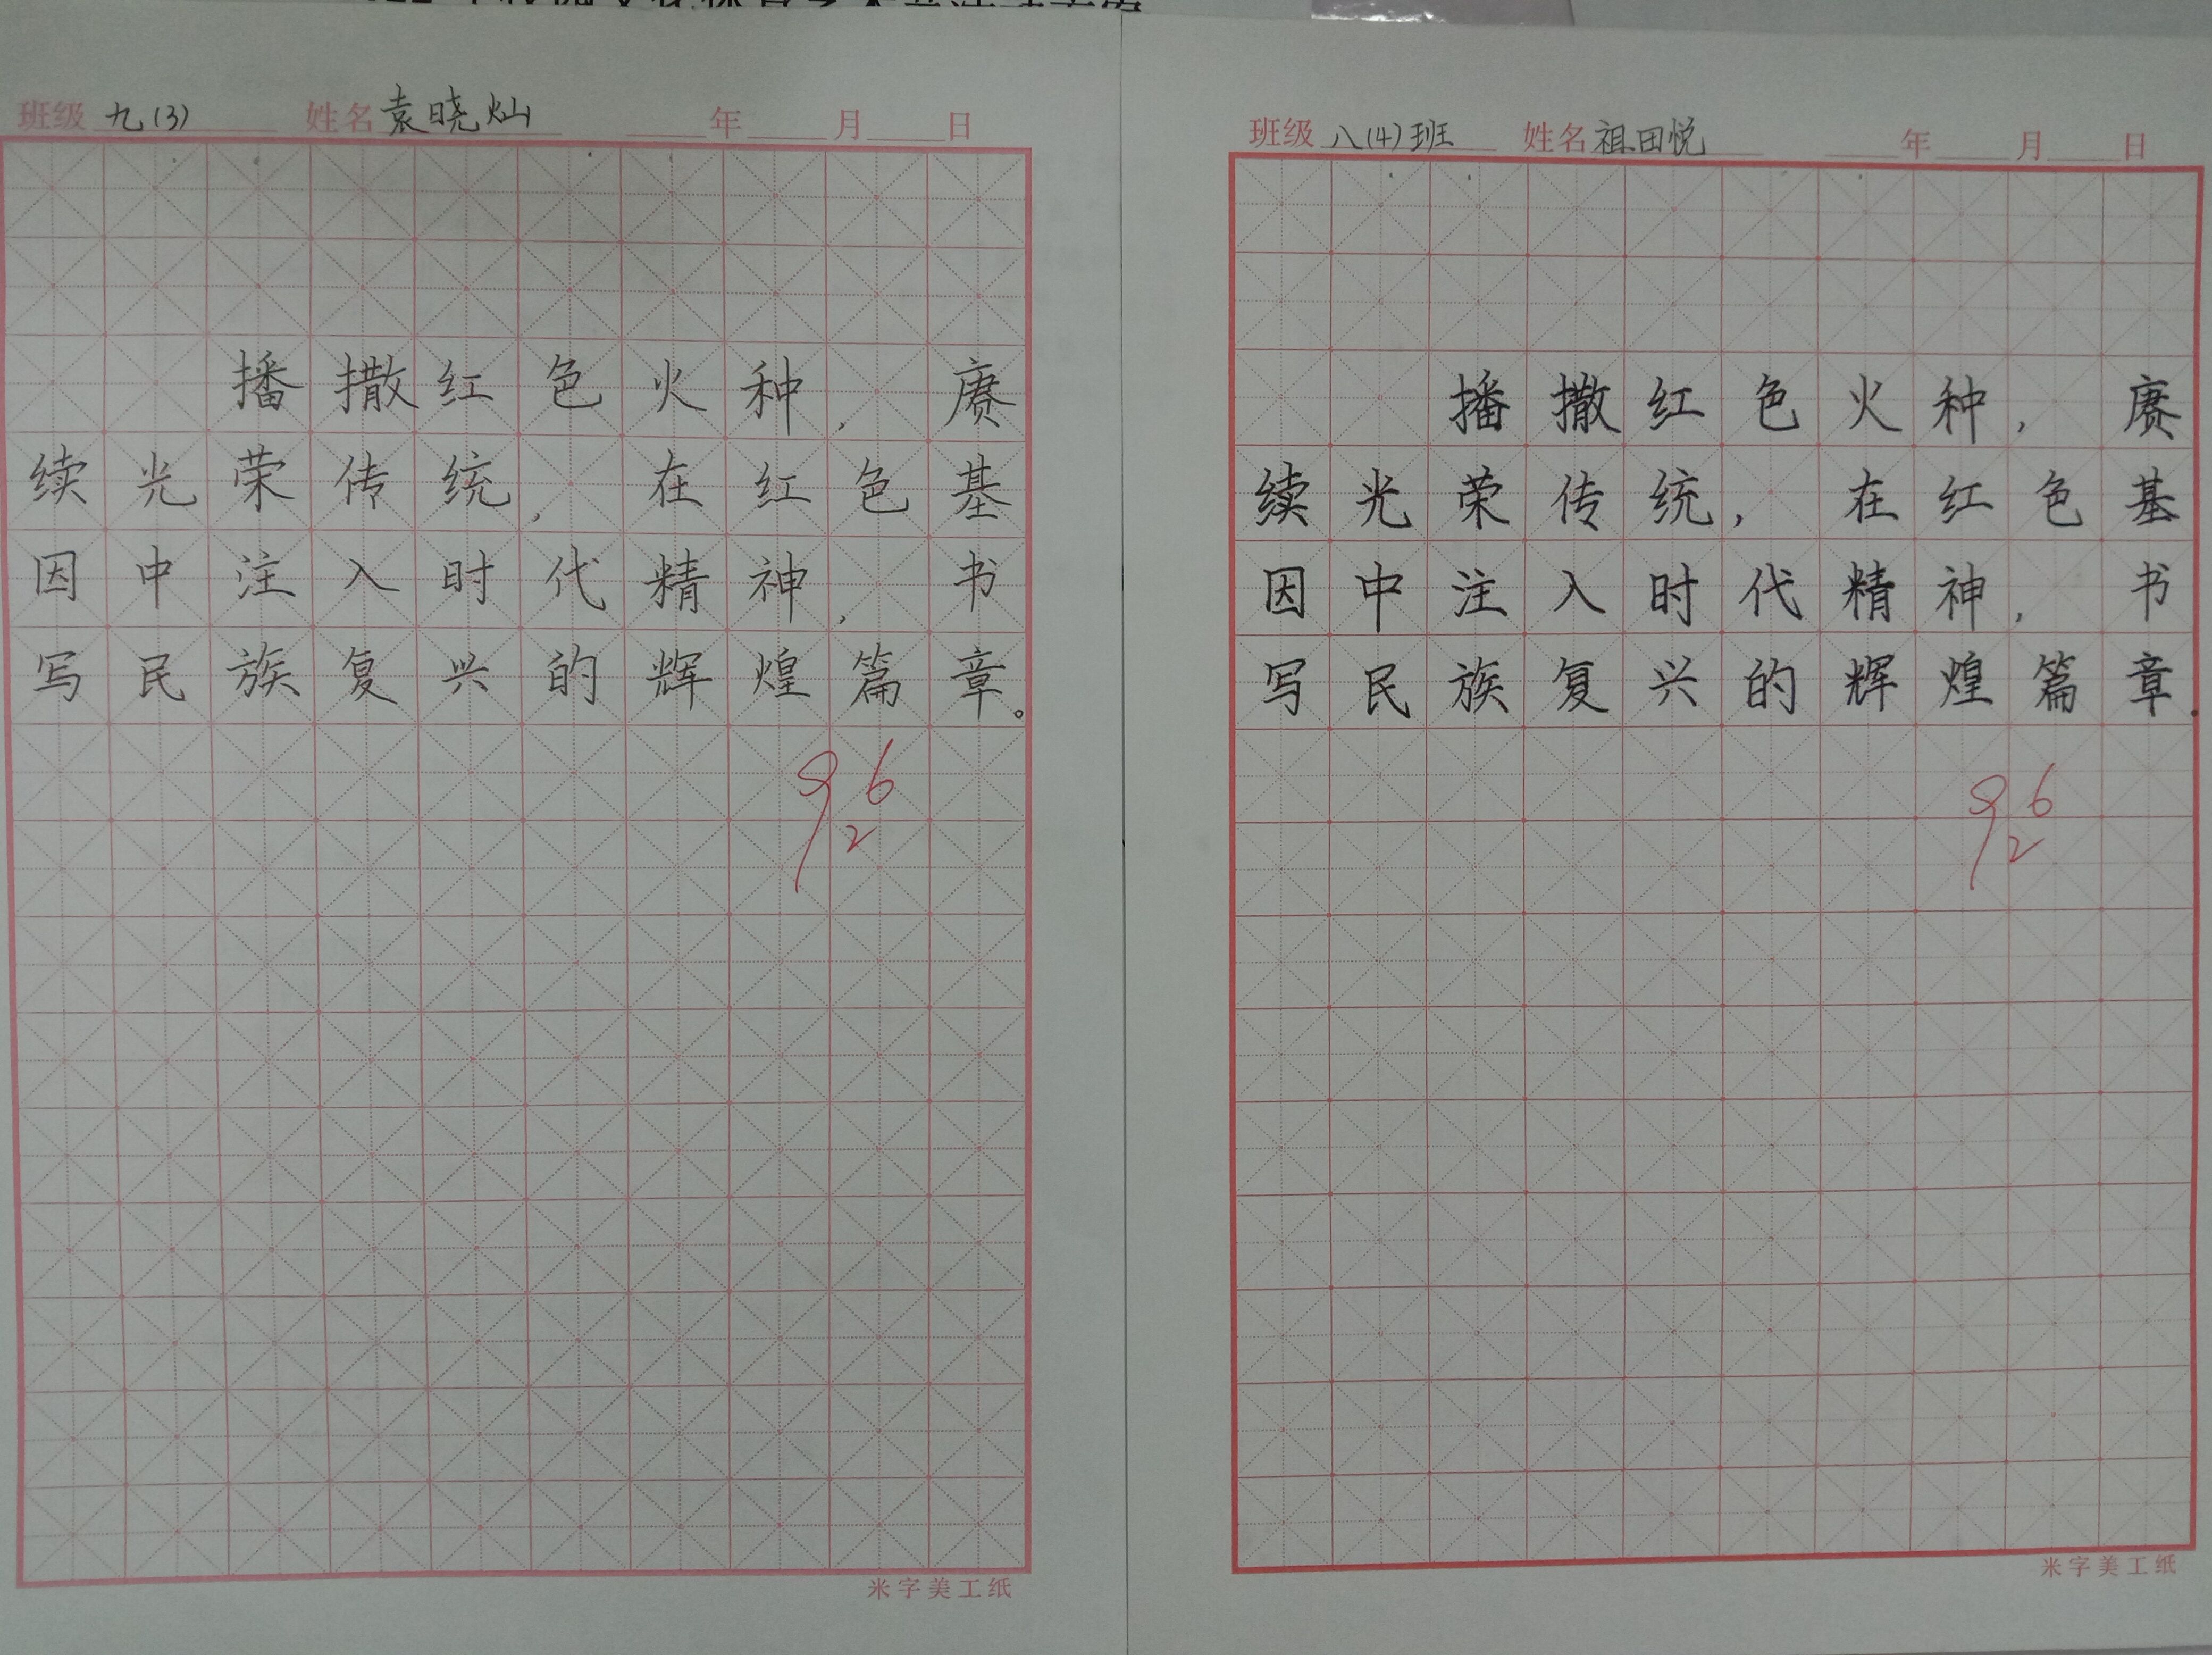 班级 九(3) 姓名 袁晓灿 年 月 日
播撒红色火种,赓
续光荣传统,在红色基
因中注入时代精神,书
写民族复兴的辉煌篇章。
96
2
米字美工纸
班级 八(4)班 姓名 祖田悦 年 月 日
播撒红色火种,赓
续光荣传统,在红色基
因中注入时代精神,书
写民族复兴的辉煌篇章.
96
2
米字美工纸